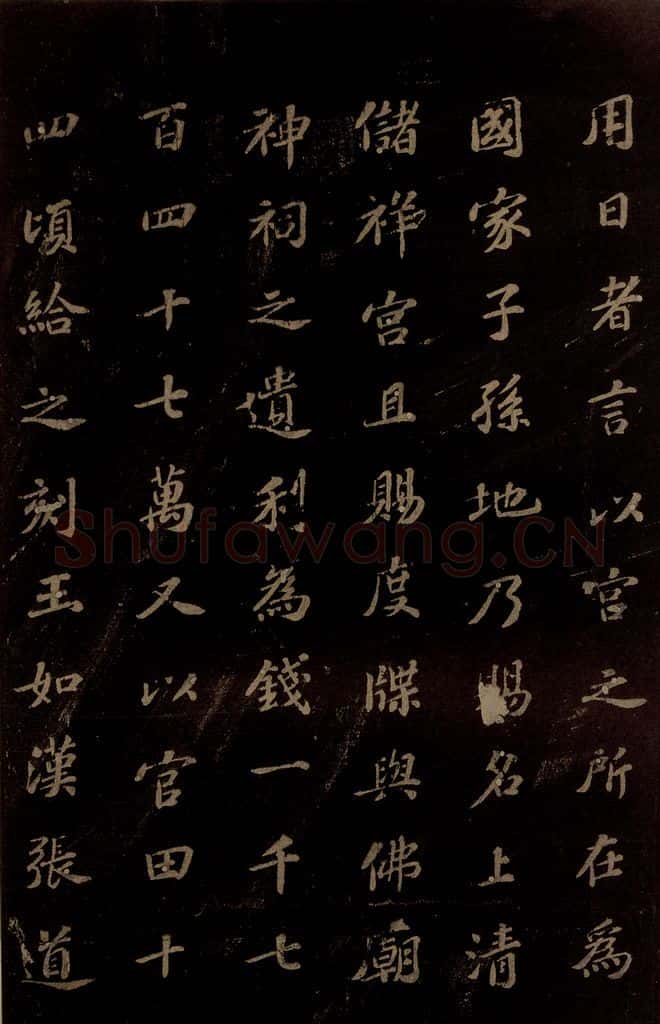 用日者言以宮之所在為
國家子孫地乃賜名上清
儲祥宮且賜度牒與佛廟
神祠之遺利為錢一千七
百四十七萬又以官田十
四頃給之刻玉如漢張道
Shufawang.CN